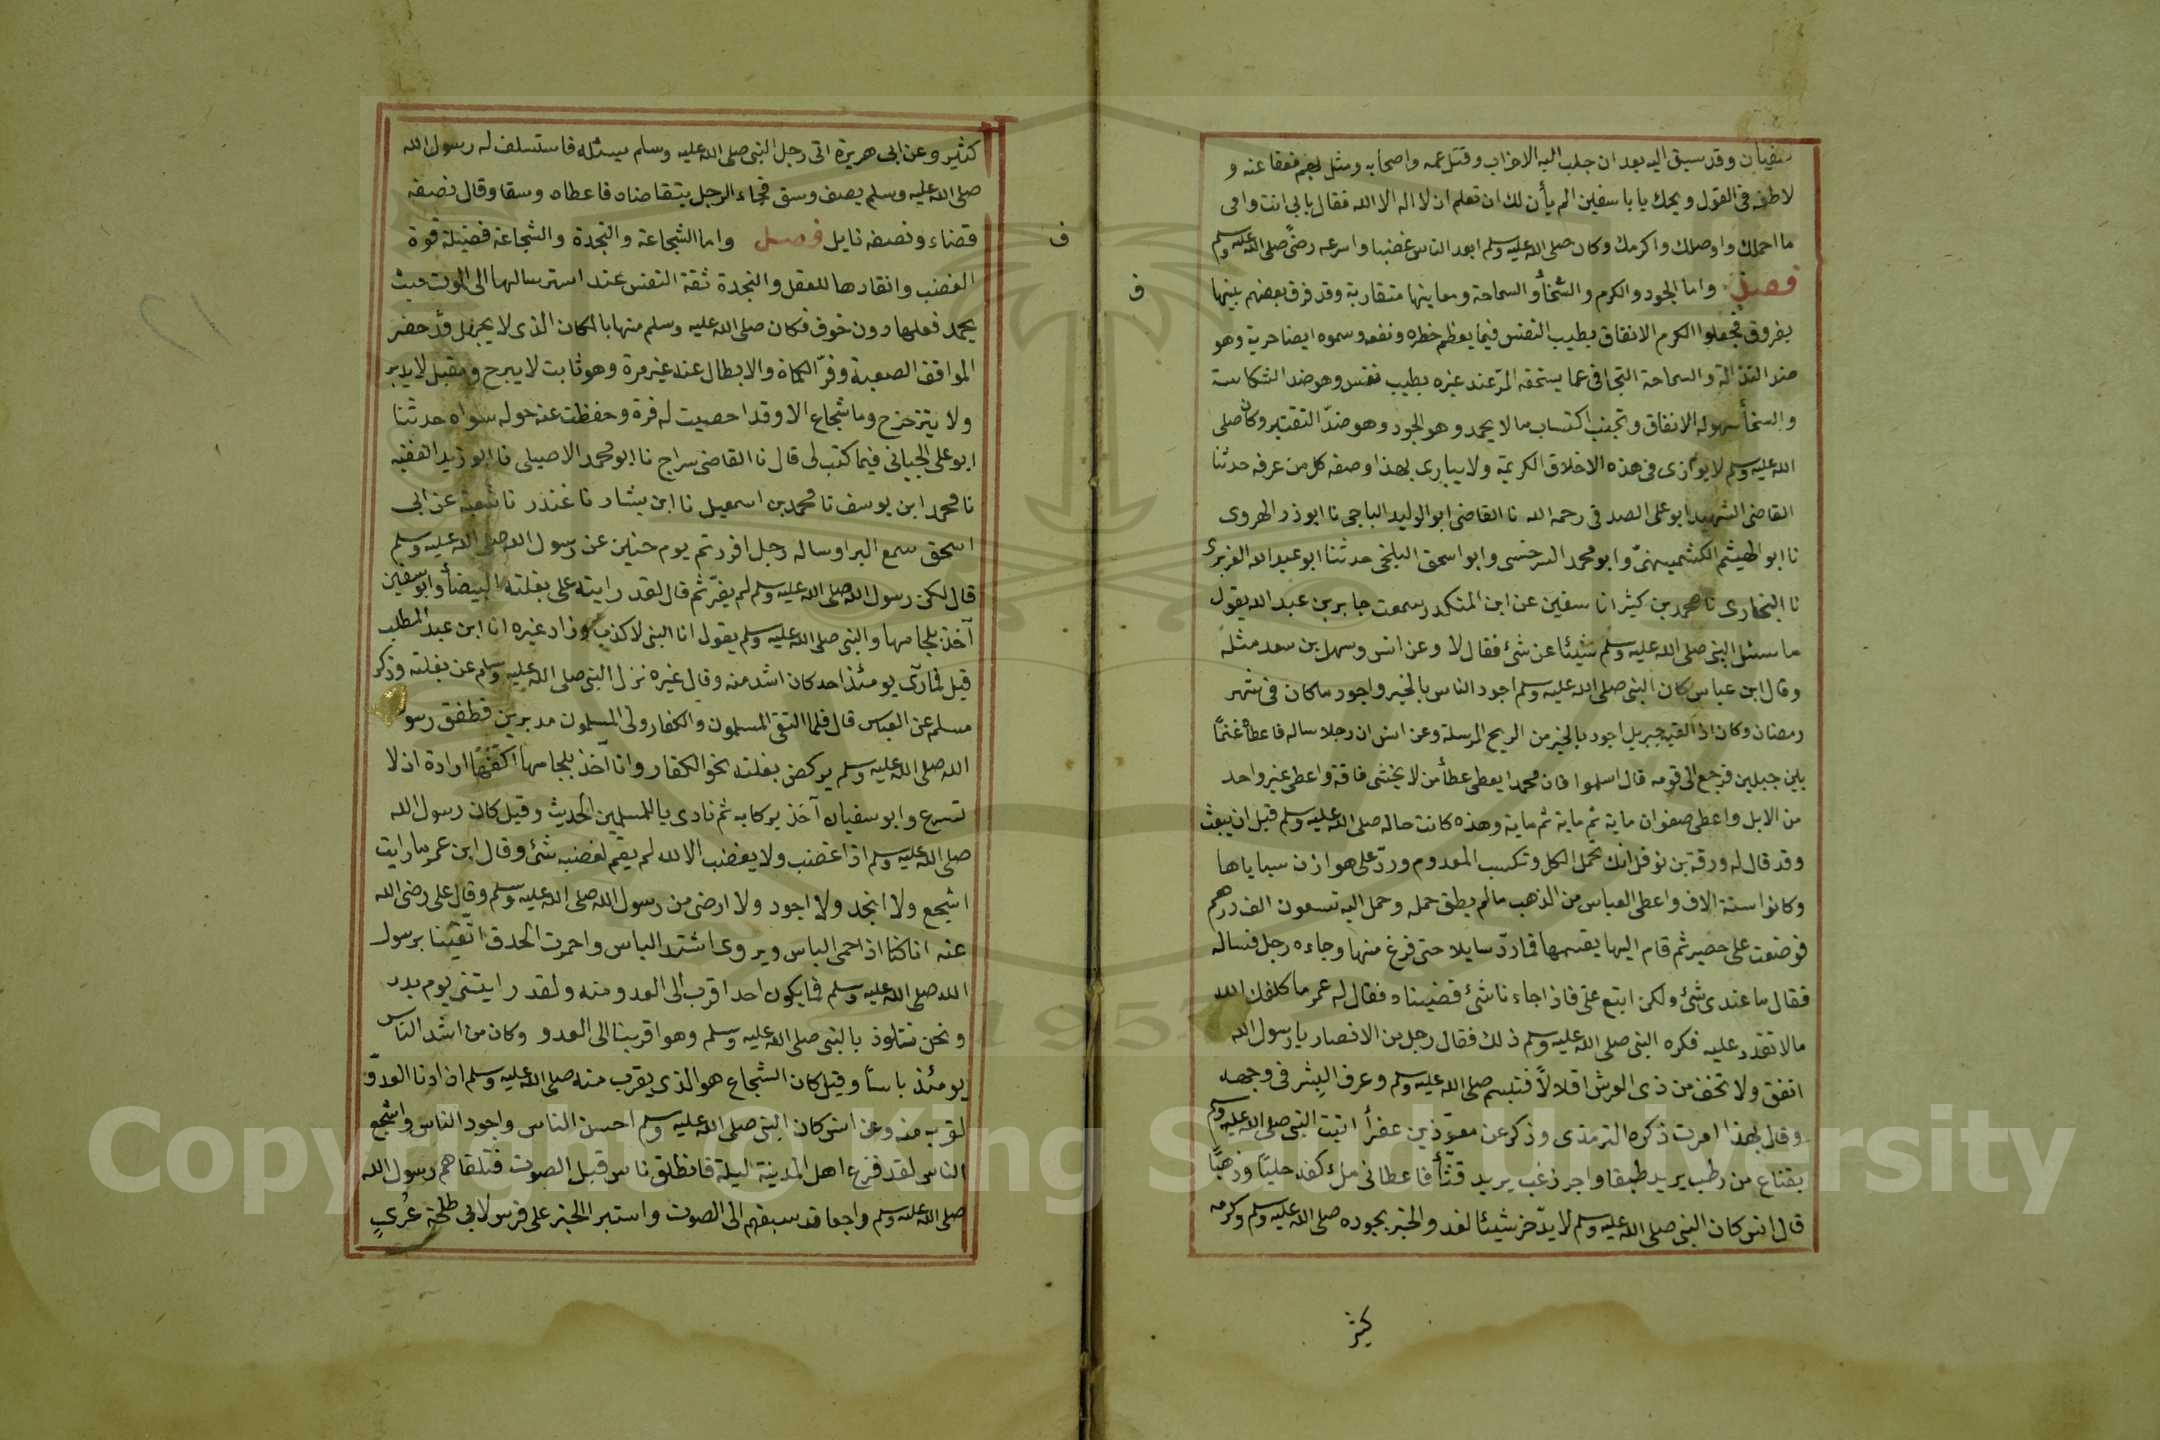 سفيان وقد سيق اليه بعد ان جلب اليه الاحزاب وقتل عمه واصحابه ومثل بهم فعفا عنه و
لاطفه في القول ويحك يابا سفين الم يأن لك ان تعلم ان لا اله الا الله فقال بابي انت وامى
ما احملك واوصلك واكرمك وكان صلى الله عليه وسلم ابعد الناس غضبا واسرعه رضىً صلى الله عليه وسلم
فصل واما الجود والكرم والسّخأ والسماحة ومعاينها متقاربة وقد فرق بعضهم بينها
بفروق فجعلوا الكرم الانفاق بطيب النفس فيما يعظم خطره ونفعه وسموه ايضا حرية وهو
ضد النذالة والسماحة التجافى عما يستحقه المرّ عند غيره بطيب نفس وهو ضد الشكاسة
والسخأ سهولة الانفاق وتجنب اكتساب ما لا يحمد وهو الجود وهو ضدّ التقتير وكان صلى
الله عليه وسلم لا يوازى فى هذه الاخلاق الكريمة ولا يبارى بهذا وصفه كل من عرفه حدثنا
القاضى الشهيد ابو على الصدفى رحمه الله نا القاضى ابو الوليد الباجى نا ابو ذر الهروى
نا ابو الهيثم الكشميهنىّ وابو محمد السرخسى وابو اسحق البلخى حدثنا ابو عبد الله الفربرى
نا البخارى نا محمد بن كثير انا سفين عن ابن المنكدر سمعت جابر بن عبد الله يقول
ما سئل النبى صلى الله عليه وسلم شيئا عن شئ فقال لا وعن انس وسهل بن سعد مثله
وقال ابن عباس كان النبى صلى الله عليه وسلم اجود الناس بالخير واجود ما كان فى شهر
رمضان وكان اذا لقيه جبريل اجود بالخير من الريح المرسلة وعن انس ان رجلا ساله فاعطاه غنمًا
بين جبلين فرجع الى قومه قال اسلموا فان محمدا يعطى عطأ من لا يخشى فاقة واعطى غير واحد
من الابل واعطى صفوان ماية ثم ماية ثم ماية وهذه كانت حاله صلى الله عليه وسلم قبل ان يبعث
وقد قال له ورقة بن نوفل انك تحمل الكل وتكسب المعدوم وردّ على هوازن سباياها
وكانوا ستة الاف واعطى العباس من الذهب مالم يطق حمله وحمل اليه تسعون الف درهم
فوضعت على حصير ثم قام اليها يقسمها فما ردّ سايلا حتى فرغ منها وجاءه رجل فساله
فقال ما عندى شئ ولكن ابتع علىّ فاذا جاءنا شئ قضيناه فقال له عمر ما كلفك الله
مالا تقدر عليه فكره النبى صلى الله عليه وسلم ذلك فقال رجل من الانصار يا رسول الله
انفق ولا تخف من ذى العرش اقلالاً فتبسم صلى الله عليه وسلم وعرف البشر فى وجهه
وقال بهذا امرت ذكره الترمذى وذكر عن معوّذ بن عفرأ اتيت النبى صلى الله عليه وسلم
بقناع من رطب يريد طبقا واجر زغب يريد قثّأ فاعطانى ملٔ كفه حليّا وذهبًا
قال انس كان النبى صلى الله عليه وسلم لا يدّخر شيئا لغد والخبر بجوده صلى الله عليه وسلم وكرمه
كثير
ف
كثير وعن ابى هريرة اتى رجل النبى صلى الله عليه وسلم يسئله فاستسلف له رسول الله
صلى الله عليه وسلم بصف وسق فجاء الرجل يتقاضاه فاعطاه وسقا وقال نصفه
قضاء ونصفه نايل فصل واما الشجاعة والنجدة والشجاعة فضيلة قوة
الغضب وانقادها للعقل والنجدة ثقة النفس عند استرسالها الى الموت حيث
يحمد فعلها دون خوف فكان صلى الله عليه وسلم منها بالمكان الذى لا يجهل قد حضر
المواقف الصعبة وفرّ الكماة والابطال عنه غير مرة وهو ثابت لا يبرح ومقبل لا يدبر
ولا يتزحزح وما شجاع الا وقد احصيت له فرة وحفظت عنه جولة سواه حدثنا
ابو على الجيانى فيما كتب لى قال نا القاضى سراج نا ابو محمد الاصيلى نا ابو زيد الفقيه
نا محمد ابن يوسف نا محمد بن اسمعيل نا ابن بشار نا غندر نا شعبة عن ابى
اسحق سمع البرا وساله رجل افررتم يوم حنين عن رسول الله صلى الله عليه وسلم
قال لكن رسول الله صلى الله عليه وسلم لم يفرّ ثم قال لقد رايته على بغلته البيضأ وابو سفين
آخذ بلجامها والنبى صلى الله عليه وسلم يقول انا النبى لا كذب وزاد غيره انا ابن عبد المطلب
قيل فما رٓى يومئذ احد كان اشد منه وقال غيره نزل النبى صلى الله عليه وسلم عن بغلته وذكر
مسلم عن العباس قال فلما التقى المسلمون والكفار ولى المسلمون مدبرين فطفق رسول
الله صلى الله عليه وسلم يركض بغلته نحو الكفار وانا آخذ بلجامها اكفّها ارادة ان لا
تسرع وابو سفيان آخذ بركابه ثم نادى يا للمسلمين الحديث وقيل كان رسول الله
صلى الله عليه وسلم اذا غضب ولا يغضب الا لله لم يقم لغضبه شئ وقال ابن عمر ما رايت
اشجع ولا انجد ولا اجود ولا ارضى من رسول الله صلى الله عليه وسلم وقال على رضى الله
عنه انا كنا اذا حمى الباس ويروى اشتد الباس واحمرت الحدق اتّقينا برسول
الله صلى الله عليه وسلم فما يكون احد اقرب الى العدو منه ولقد رايتنى يوم بدر
ونحن نتلوذ بالنبى صلى الله عليه وسلم وهو اقربنا الى العدو وكان من اشد الناس
يومئذ باسًا وقيل كان الشجاع هو الذى يقرب منه صلى الله عليه وسلم اذا دنا العدوّ
لقربه منه وعن انس كان النبى صلى الله عليه وسلم احسن الناس واجود الناس واشجع
الناس لقد فزع اهل المدينة ليلة فانطلق ناس قبل الصوت فتلقاهم رسول الله
صلى الله عليه وسلم راجعا قد سبقهم الى الصوت واستبر الخبر على فرس لابى طلحة عُرىٍ
ف
Copyright © King Saud University
1957